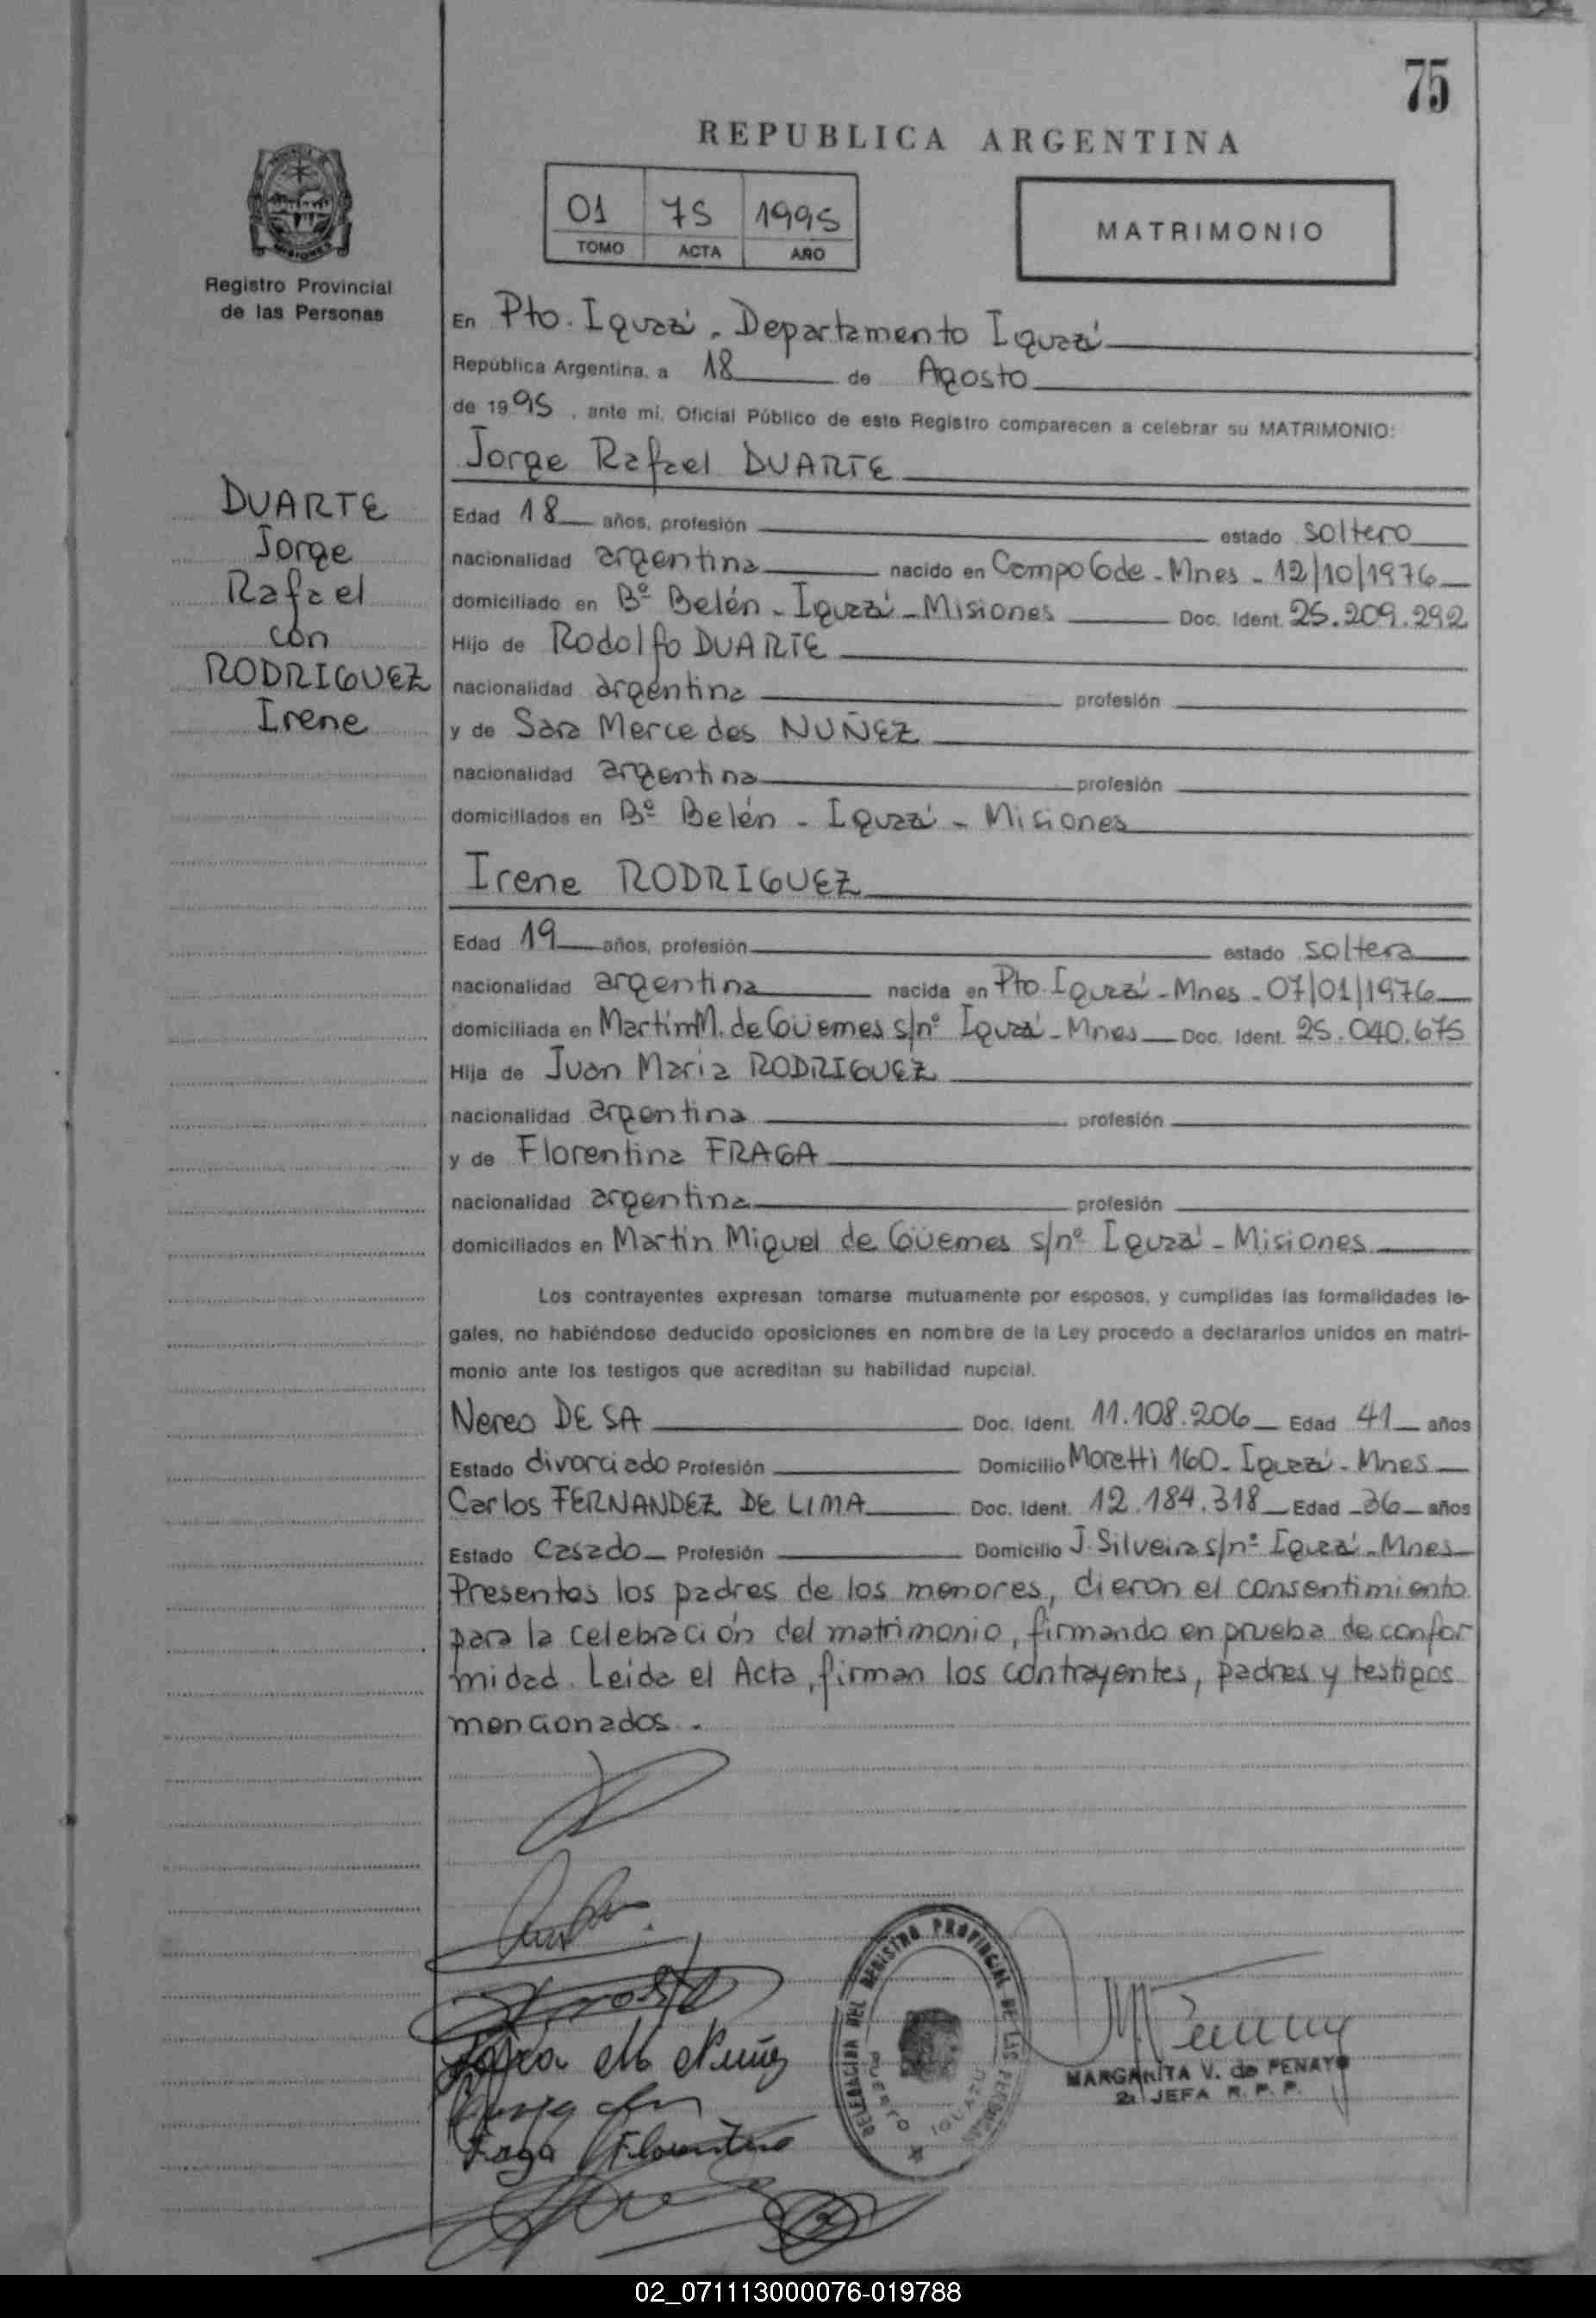 75
REPUBLICA ARGENTINA
01 75 1995
TOMO ACTA AÑO
MATRIMONIO
Registro Provincial
de las Personas
En Pto. Iguazú - Departamento Iguazú
República Argentina, a 18 de Agosto
de 1995, ante mí, Oficial Público de este Registro comparecen a celebrar su MATRIMONIO:
Jorge Rafael DUARTE
DUARTE
Jorge
Rafael
con
RODRIGUEZ
Irene
Edad 18 años, profesión estado soltero
nacionalidad argentina nacido en - Mnes - 12/10/1976
domiciliado en Bº Belén - Iguazú - Misiones Doc. Ident. 25.209.292
Hijo de Rodolfo DUARTE
nacionalidad argentina profesión
y de Sara Mercedes NUÑEZ
nacionalidad argentina profesión
domiciliados en Bº Belén - Iguazú - Misiones
Irene RODRIGUEZ
Edad 19 años, profesión estado soltera
nacionalidad argentina nacida en Pto. Iguazú - Mnes - 07/01/1976
domiciliada en Martín M. de Güemes s/nº Iguazú - Mnes Doc. Ident. 25.040.675
Hija de Juan Maria RODRIGUEZ
nacionalidad argentina profesión
y de Florentina FRAGA
nacionalidad argentina profesión
domiciliados en Martín Miguel de Güemes s/nº Iguazú - Misiones
Los contrayentes expresan tomarse mutuamente por esposos, y cumplidas las formalidades le-
gales, no habiéndose deducido oposiciones en nombre de la Ley procedo a declararlos unidos en matri-
monio ante los testigos que acreditan su habilidad nupcial.
Nereo DE SA Doc. Ident. 11.108.206 Edad 41 años
Estado divorciado Profesión Domicilio Moretti 160 - Iguazú - Mnes
Carlos FERNANDEZ DE LIMA Doc. Ident. 12.184.318 Edad 36 años
Estado casado Profesión Domicilio J. Silveira s/nº Iguazú - Mnes
Presentes los padres de los menores, dieron el consentimiento
para la celebración del matrimonio, firmando en prueba de confor
midad. Leida el Acta, firman los contrayentes, padres y testigos
mencionados.
Sara M Nuñez
Fraga Florentina
DELEGACION DEL REGISTRO PROVINCIAL DE LAS PERSONAS
PUERTO IGUAZU
MARGARITA V. de PENAYO
2ª JEFA R. P. P.
02_071113000076-019788